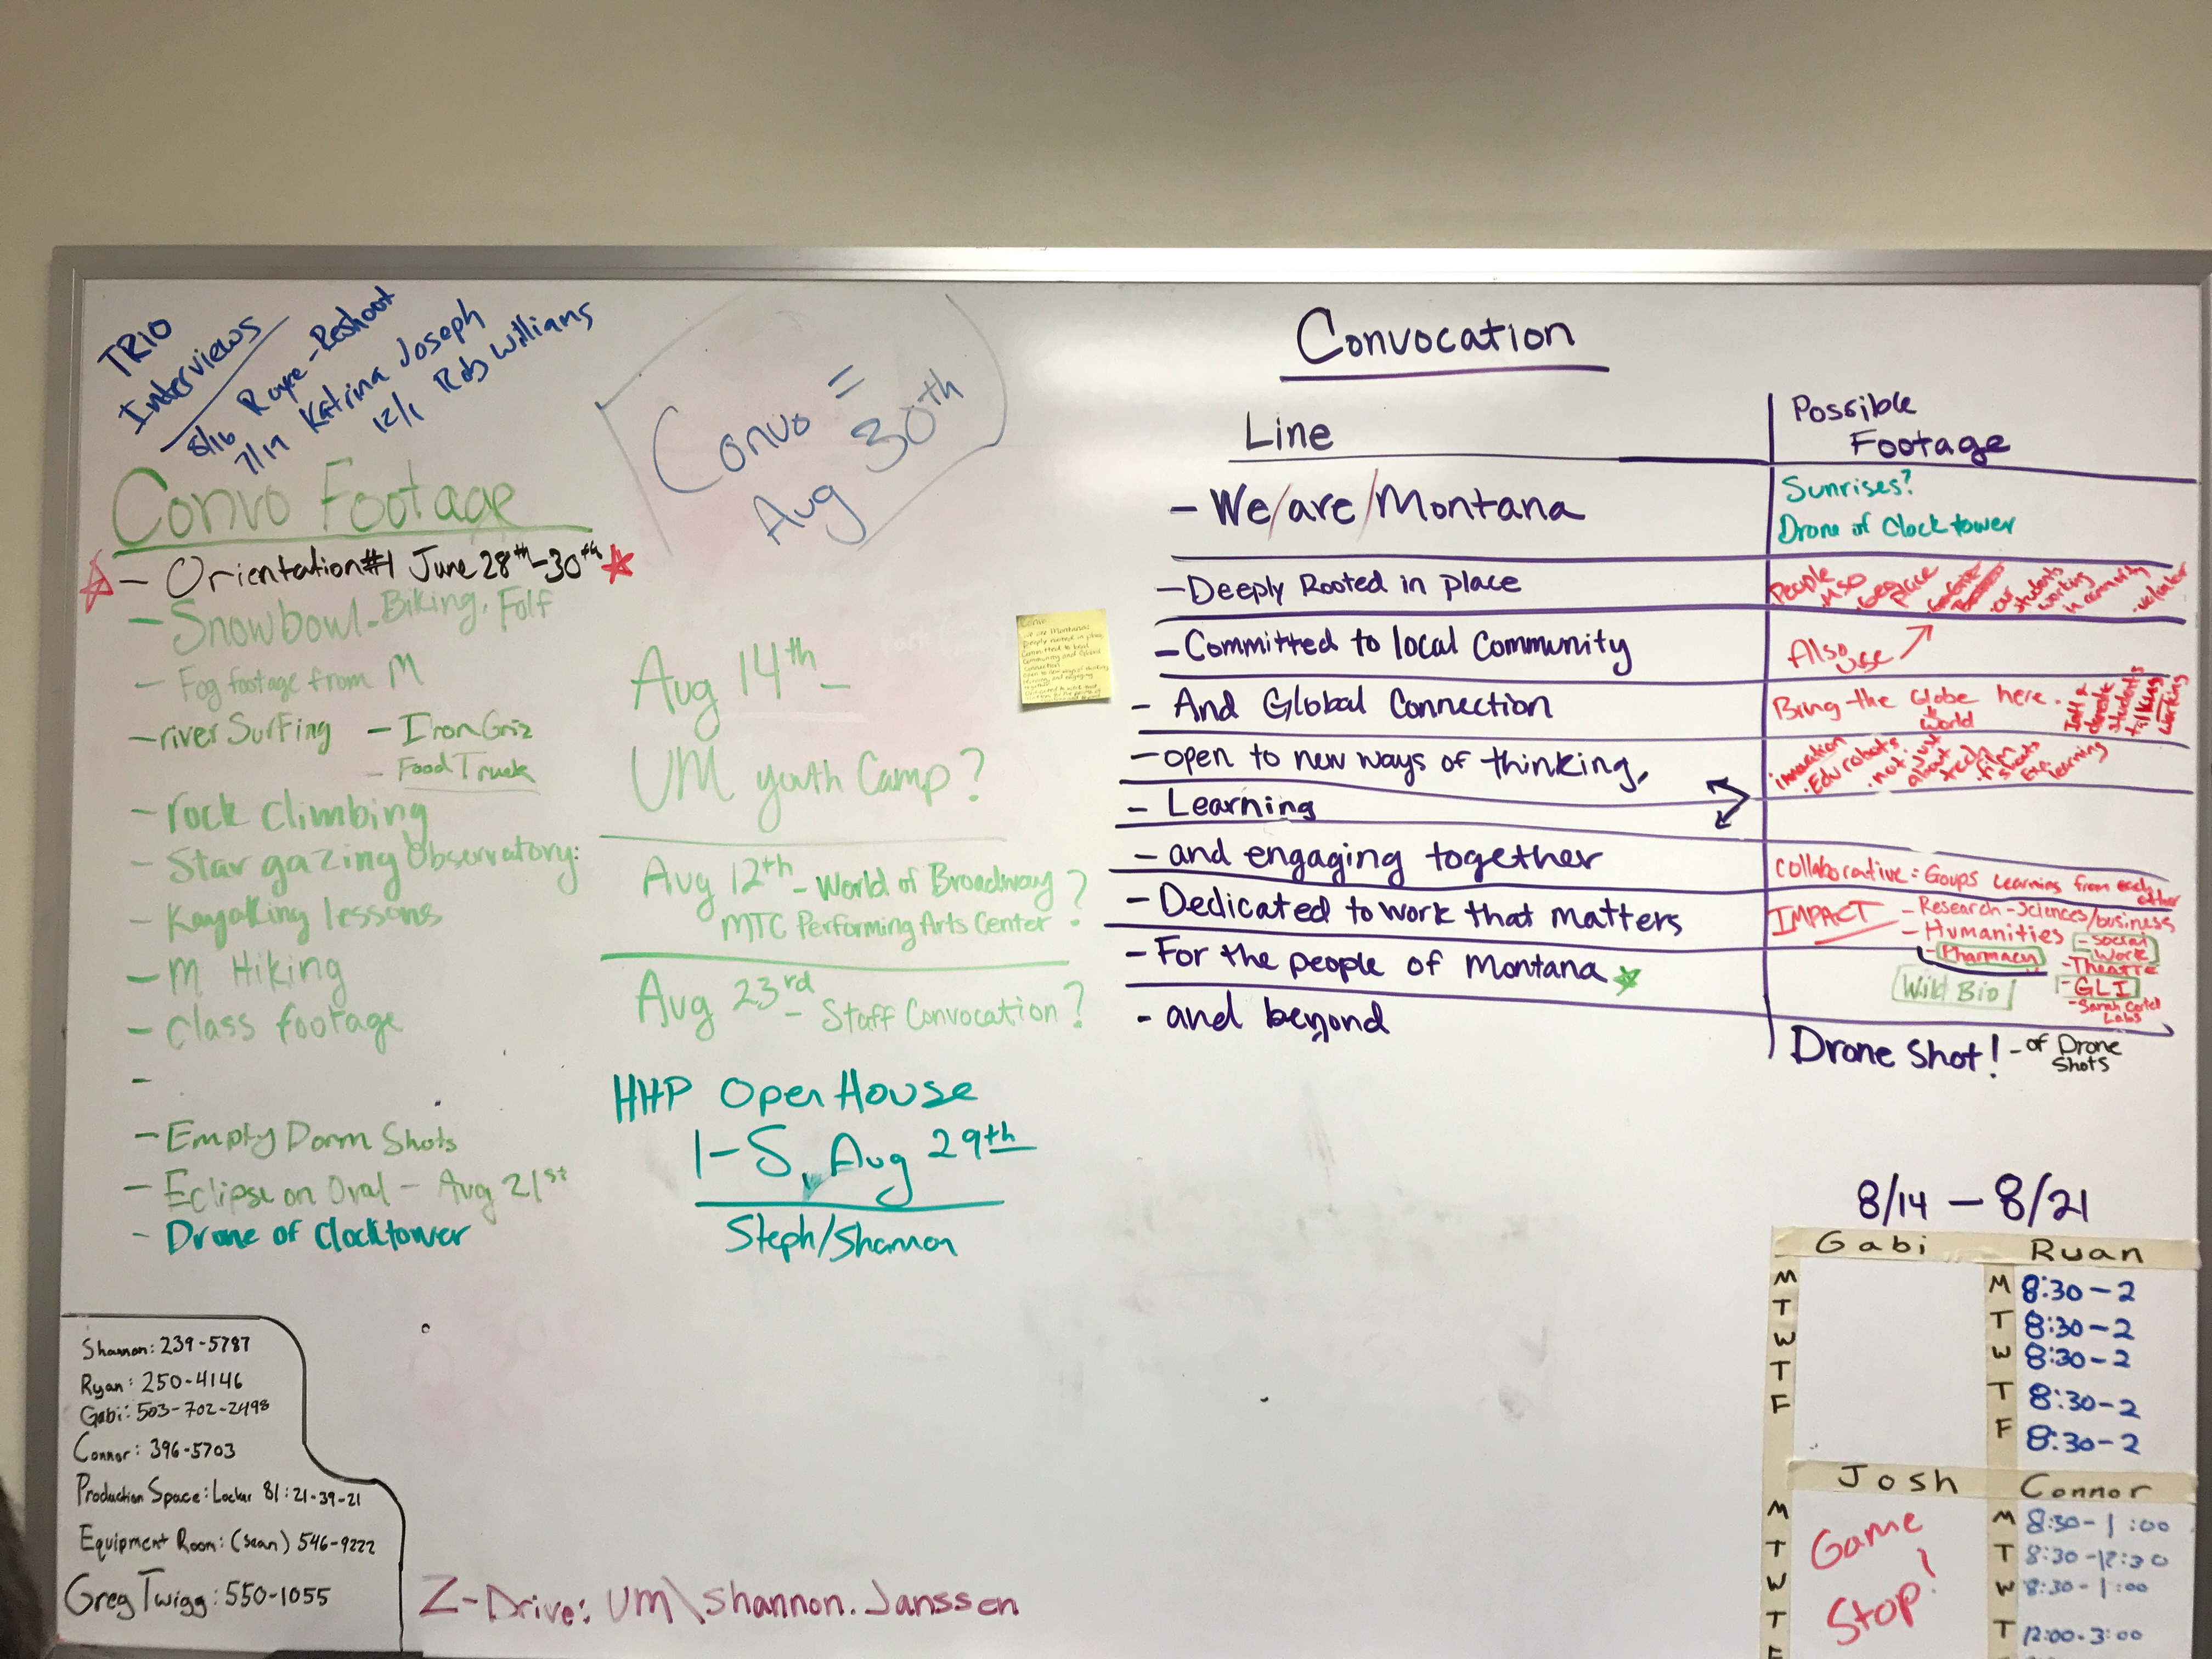 TRIO
Interviews
8/16 Raye-Reshoot
7/19 Katrina Joseph
12/1 Rob Williams
Convo =
Aug 30th
Convo Footage
- Orientation #1 June 28th-30th
- Snowbowl - Biking, Folf
- Fog footage from M
- river Surfing - Iron Griz
- Food Truck
- rock climbing
- Star gazing Observatory:
- Kayaking lessons
- M Hiking
- Class footage
-
- Empty Dorm Shots
- Eclipse on Oval - Aug 21st
- Drone of Clocktower
Aug 14th -
UM youth Camp?
Aug 12th - World of Broadway?
MTC Performing Arts Center
Aug 23rd - Staff Convocation?
HHP Open House
1-5, Aug 29th
Steph/Shannon
Convocation
Line
Possible
Footage
- We/are/Montana
Sunrises?
Drone of Clocktower
- Deeply Rooted in place
People
place
our
students
working
in community
- Committed to local Community
Also use
- And Global Connection
Bring the Globe here.
world
Int'l +
students
talking
working
- open to new ways of thinking,
innovation
. Edu robots
. not just
about
tech
film
shots
Exp.
learning
- Learning
- and engaging together
Collaborative: Goups Learning from each
other
- Dedicated to work that matters
IMPACT - Research - Sciences/business
- Humanities
- Social
Work
- For the people of Montana
- Pharmacy
- Theatre
Wild Bio
- GLI
- Sarah Certel
Labs
- and beyond
Drone Shot! - of Drone
Shots
8/14 - 8/21
Gabi
Ryan
M
T
W
T
F
M 8:30-2
T 8:30-2
W 8:30-2
T 8:30-2
F 8:30-2
Josh
Connor
M
T
W
T
F
Game
Stop!
M 8:30-1:00
T 8:30-12:30
W 8:30-1:00
T 12:00-3:00
Shannon: 239-5787
Ryan: 250-4146
Gabi: 503-702-2498
Connor: 396-5703
Production Space: Locker 81: 21-39-21
Equipment Room: (Sean) 546-9222
Greg Twigg: 550-1055
Z-Drive: UM\shannon.Janssen